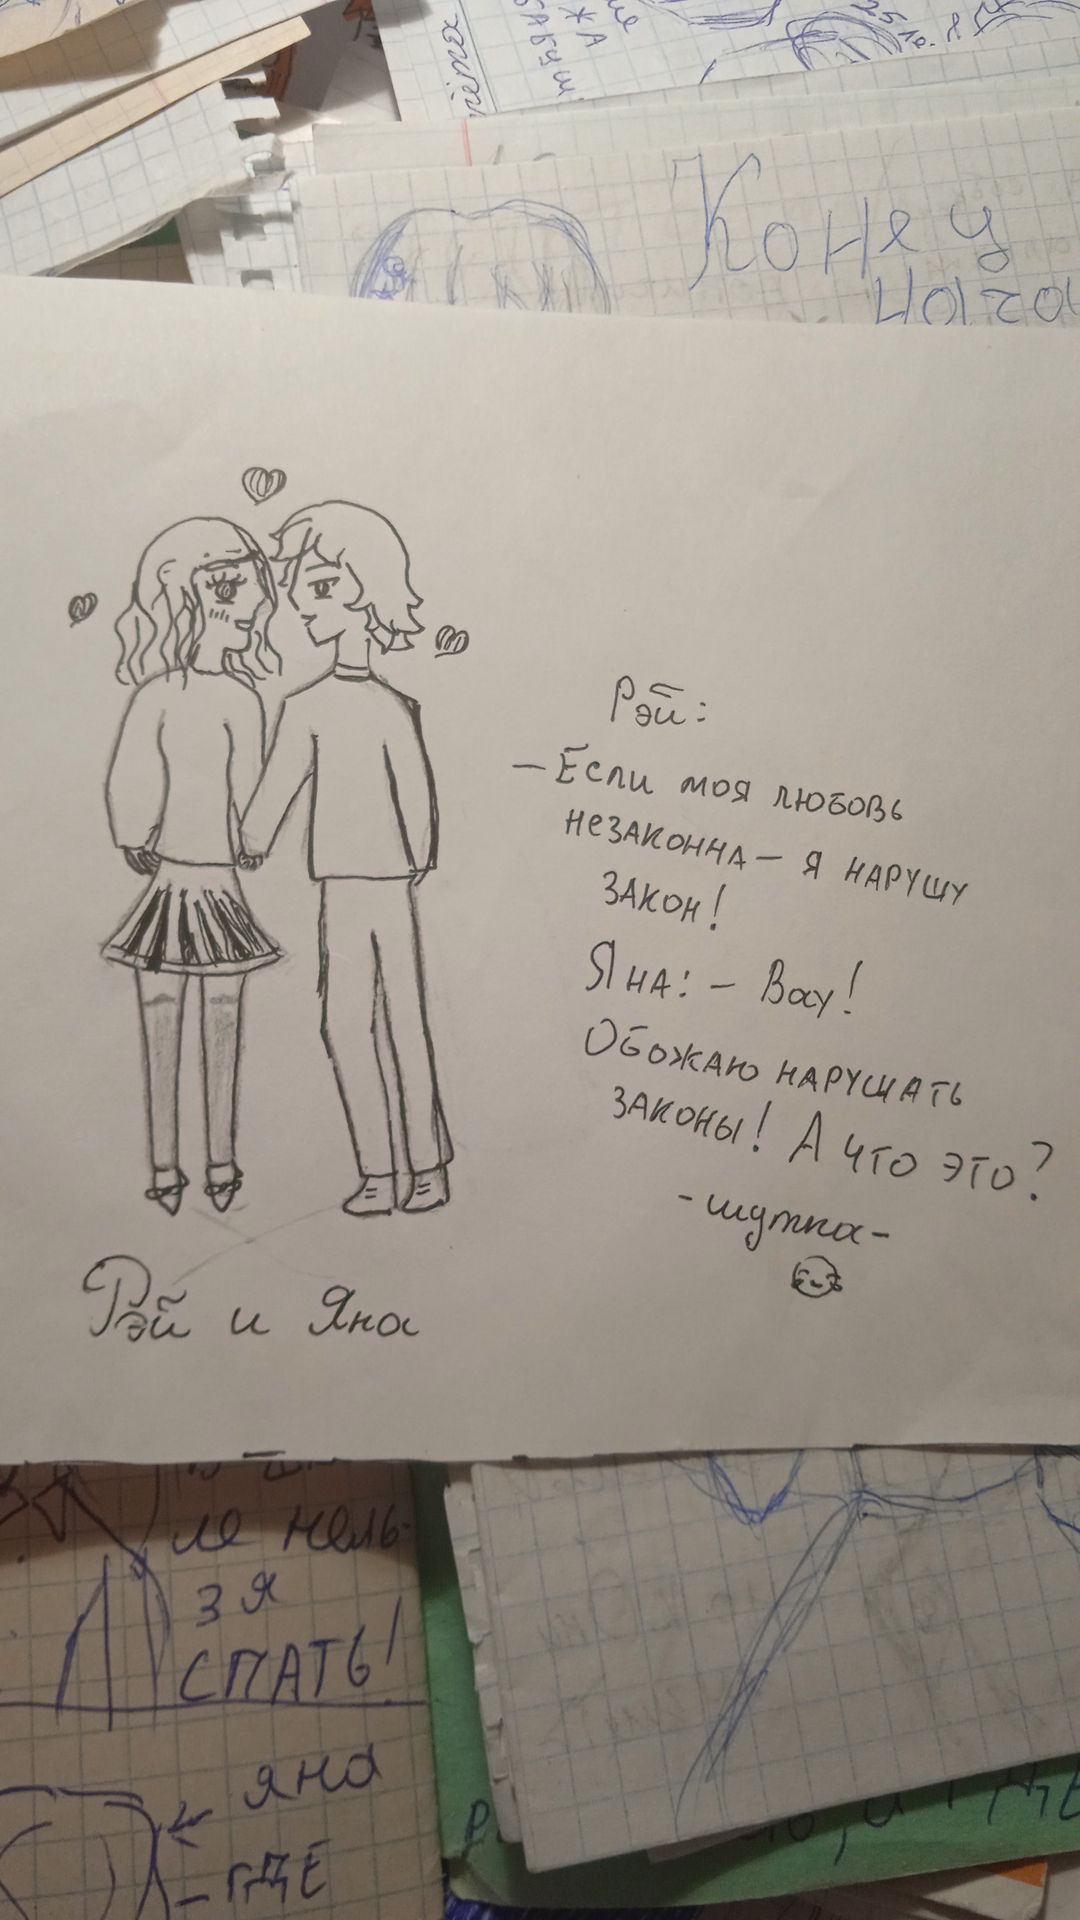 Конец
Рэй:
– Если моя любовь
незаконна – я нарушу
закон!
Яна: – Вау!
Обожаю нарушать
законы! А что это?
- шутка -
Рэй и Яна
ле нель-
зя
СПАТЬ!
яна
– ГДЕ